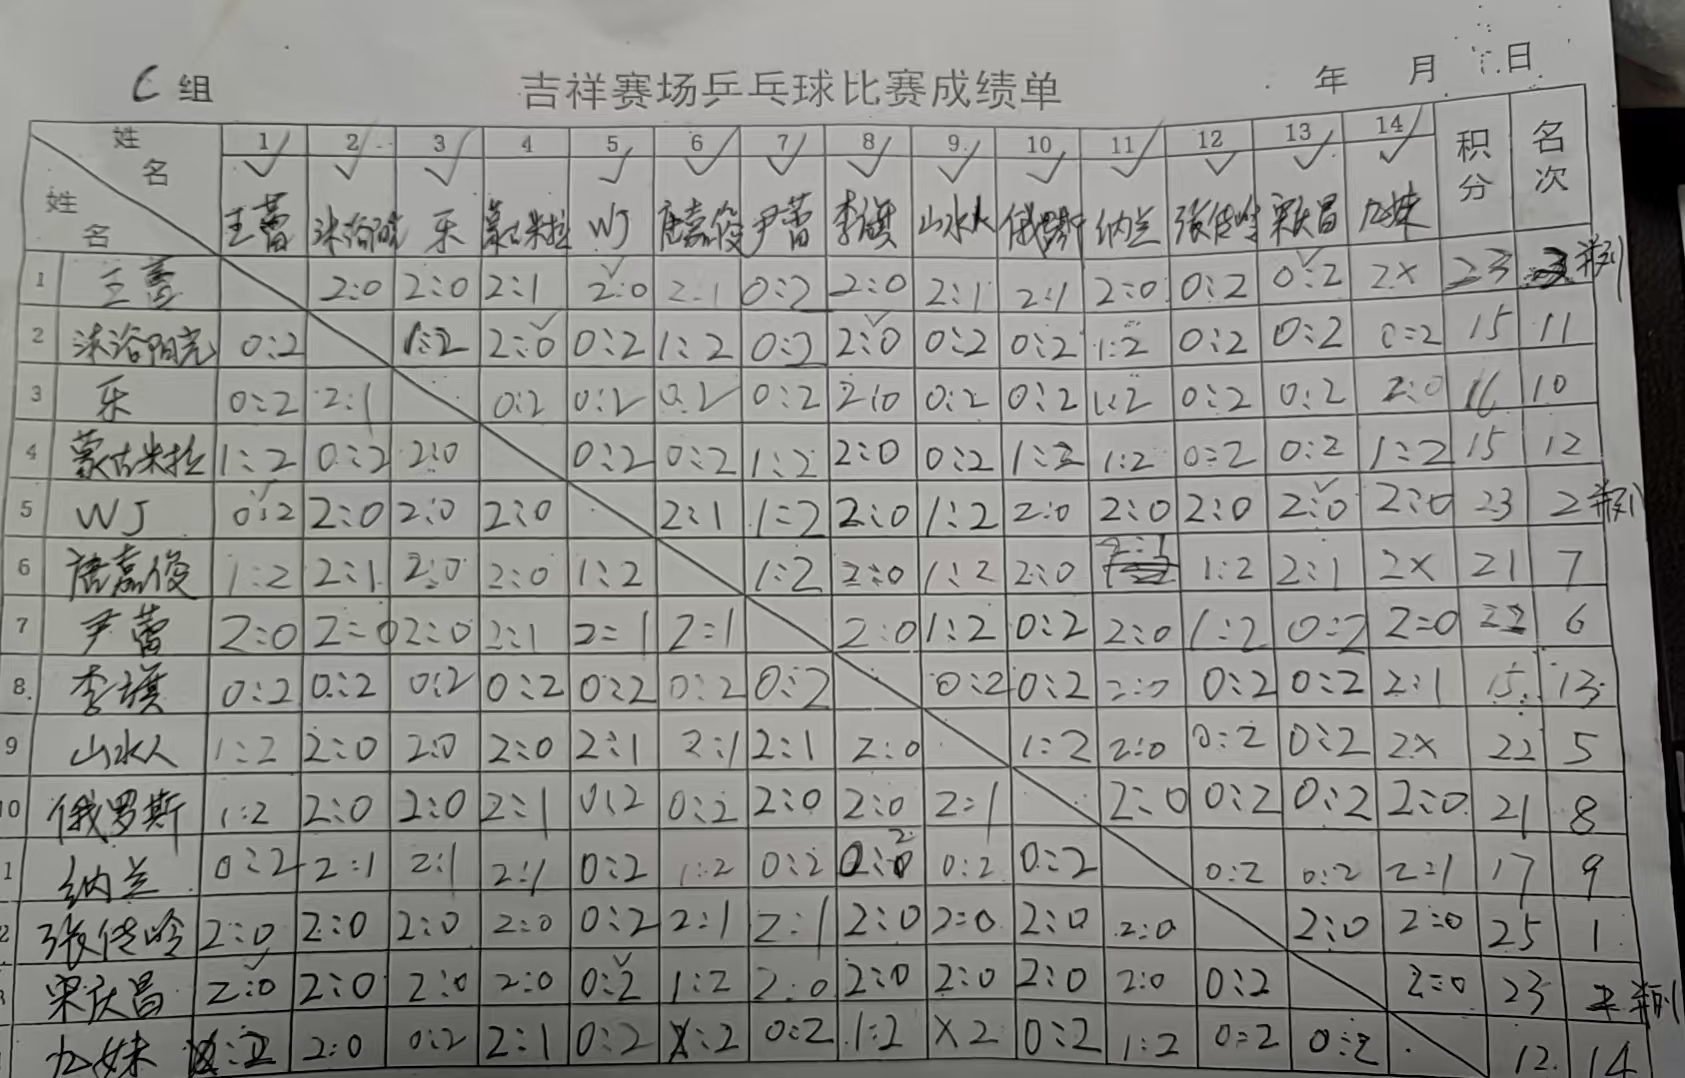 C 组 吉祥赛场乒乓球比赛成绩单 年 月 日
姓名 姓名 1 2 3 4 5 6 7 8 9 10 11 12 13 14 积分 名次
王蕾 沐浴阳光 乐 蒙古米拉 WJ 唐嘉俊 尹蕾 李旗 山水人 俄罗斯 纳兰 张传岭 宋庆昌 九妹
1 王蕾 2:0 2:0 2:1 2:0 2:1 0:2 2:0 2:1 2:1 2:0 0:2 0:2 2× 23 并列
2 沐浴阳光 0:2 1:2 2:0 0:2 1:2 0:2 2:0 0:2 0:2 1:2 0:2 0:2 0:2 15 11
3 乐 0:2 2:1 0:2 0:2 0:2 0:2 2:0 0:2 0:2 1:2 0:2 0:2 2:0 16 10
4 蒙古米拉 1:2 0:2 2:0 0:2 0:2 1:2 2:0 0:2 1:2 1:2 0:2 0:2 1:2 15 12
5 WJ 0:2 2:0 2:0 2:0 2:1 1:2 2:0 1:2 2:0 2:0 2:0 2:0 2:0 23 2 并列
6 唐嘉俊 1:2 2:1 2:0 2:0 1:2 1:2 2:0 1:2 2:0 2:1 1:2 2:1 2× 21 7
7 尹蕾 2:0 2:0 2:0 2:1 2:1 2:1 2:0 1:2 0:2 2:0 1:2 0:2 2:0 22 6
8 李旗 0:2 0:2 0:2 0:2 0:2 0:2 0:2 0:2 0:2 2:0 0:2 0:2 2:1 15 13
9 山水人 1:2 2:0 2:0 2:0 2:1 2:1 2:1 2:0 1:2 2:0 0:2 0:2 2× 22 5
10 俄罗斯 1:2 2:0 2:0 2:1 0:2 0:2 2:0 2:0 2:1 2:0 0:2 0:2 2:0 21 8
1 纳兰 0:2 2:1 2:1 2:1 0:2 1:2 0:2 0:2 0:2 0:2 0:2 0:2 2:1 17 9
2 张传岭 2:0 2:0 2:0 2:0 0:2 2:1 2:1 2:0 2:0 2:0 2:0 2:0 2:0 25 1
宋庆昌 2:0 2:0 2:0 2:0 0:2 1:2 2:0 2:0 2:0 2:0 2:0 0:2 2:0 23 2 并列
九妹 ×:2 2:0 0:2 2:1 0:2 ×:2 0:2 1:2 ×2 0:2 1:2 0:2 0:2 12 14